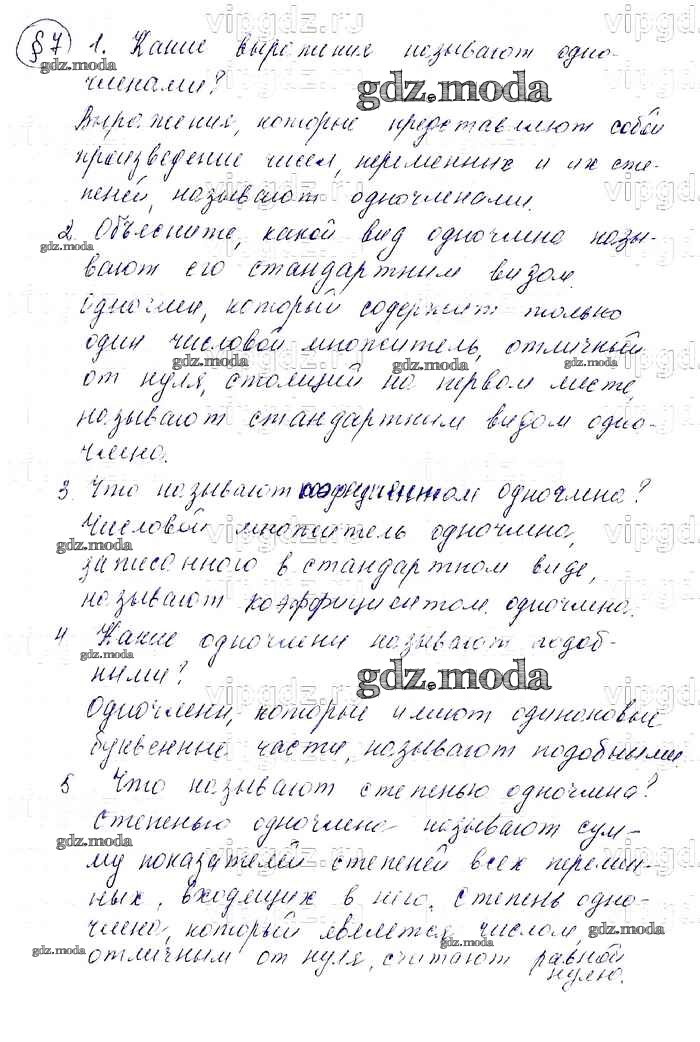 §7 1. Какие выражения называют одно-
членами?
Выражения, которые представляют собой
произведение чисел, переменных и их сте-
пеней, называют одночленами.
2. Объясните, какой вид одночлена назы-
вают его стандартным видом.
Одночлен, который содержит только
один числовой множитель, отличный
от нуля, стоящий на первом месте,
называют стандартным видом одно-
члена.
3. Что называют коэффициентом одночлена?
Числовой множитель одночлена,
записанного в стандартном виде,
называют коэффициентом одночлена.
4 Какие одночлены называют подоб-
ными?
Одночлены, которые имеют одинаковые
буквенные части, называют подобными
5 Что называют степенью одночлена?
Степенью одночлена называют сум-
му показателей степеней всех перемен-
ных, входящих в него. Степень одно-
члена, который является числом,
отличным от нуля, считают равной
нулю.
vipgdz.ru
gdz.moda